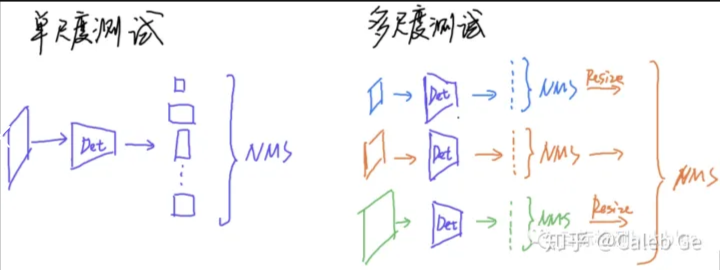 单尺度测试
Det
NMS
多尺度测试
Det
NMS
Resize
Det
NMS
Det
NMS
Resize
NMS
知乎 @Caleb Ge